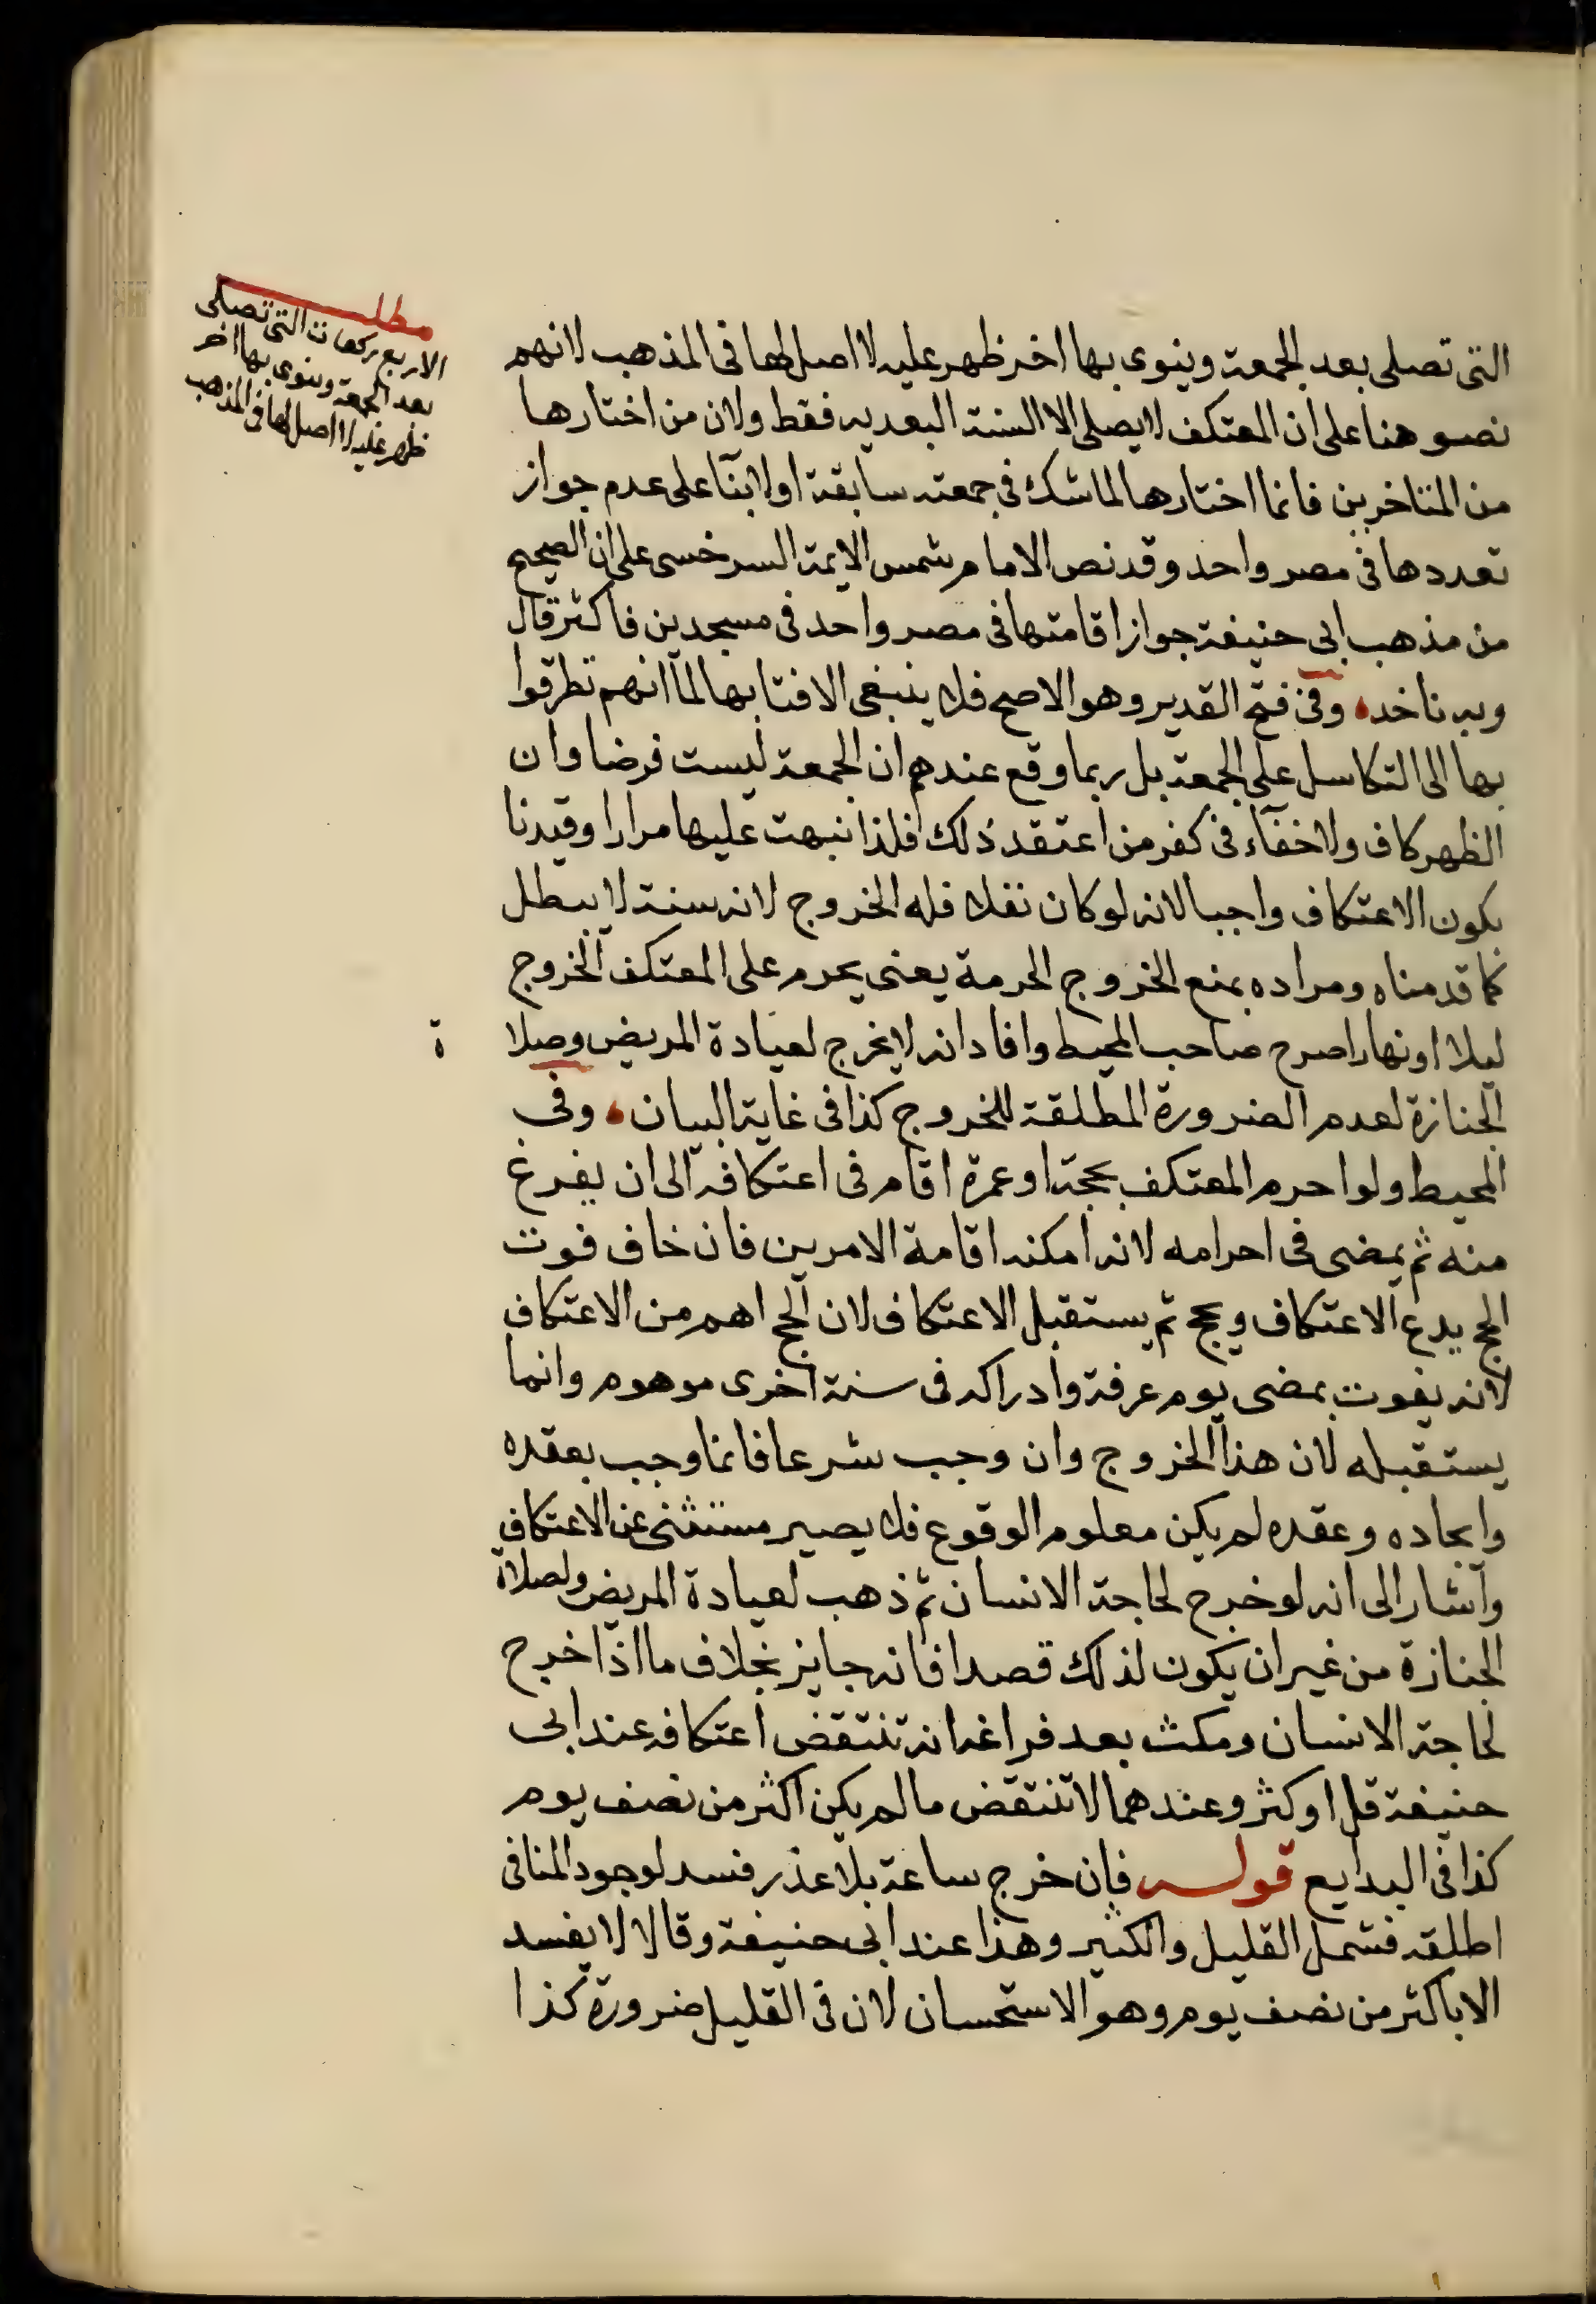 مطلب
الاربع ركعات التى تصلى
بعد الجمعة وينوى بها اخر
ظهر عليه لا اصل لها فى المذهب
التى تصلى بعد الجمعة وينوى بها اخر ظهر عليه لا اصل لها فى المذهب لانهم
نصو هنا على ان المعتكف لا يصلى الا السنة البعديه فقط ولان من اختارها
من المتاخرين فانما اختارها لما شك فى جمعته سابقة اولا بنآ على عدم جواز
تعددها فى مصر واحد وقد نص الامام شمس الايمة السرخسى على ان الصحيح
من مذهب ابى حنيفة جواز اقامتها فى مصر واحد فى مسجدين فاكثر قال
وبه ناخد وفى فتح القدير وهو الاصح فلا ينبغى الافتا بها لما انهم تطرقوا
بها الى التكاسل على الجمعة بل ربما وقع عندهم ان الجمعة ليست فرضا وان
الظهر كاف ولا خفآء فى كفر من اعتقد ذلك فلذا نبهت عليها مرارا وقيدنا
بكون الاعتكاف واجبا لانه لو كان نفلا فله الخروج لانه سنة لا يبطل
كما قدمناه ومراده بمنع الخروج الحرمة يعنى يحرم على المعتكف الخروج
ليلا او نهارا صرح صاحب المحيط وافاد انه لا يخرج لعيادة المريض وصلا ة
الجنازة لعدم الضرورة المطلقة للخروج كذا فى غاية البيان وفى
المحيط ولو احرم المعتكف بحجة او عمرة اقام فى اعتكافه الى ان يفرغ
منه ثم يمضى فى احرامه لانه امكنه اقامة الامرين فان خاف فوت
الحج يدع الاعتكاف ويحج ثم يستقبل الاعتكاف لان الحج اهم من الاعتكاف
لانه يفوت بمضى يوم عرفة وادراكه فى سنة اخرى موهوم وانما
يستقبله لان هذا الخروج وان وجب شرعا فانما وجب بعقده
وايجاده وعقده لم يكن معلوم الوقوع فلا يصير مستثنى عن الاعتكاف
واشار الى انه لو خرج لحاجة الانسان ثم ذهب لعيادة المريض ولصلاة
الجنازة من غير ان يكون لذلك قصدا فانه جايز بخلاف ما اذا خرج
لحاجة الانسان ومكث بعد فراغه انه تنتقض اعتكافه عند ابى
حنيفة قل او كثر وعندهما لا تنتقض ما لم يكن اكثر من نصف يوم
كذا فى البدايع قوله فان خرج ساعة بلا عذر فسد لوجود المنافى
اطلقه فشمل القليل والكثير وهذا عند ابى حنيفة وقالا لا يفسد
الا باكثر من نصف يوم وهو الاستحسان لان فى القليل ضرورة كذا